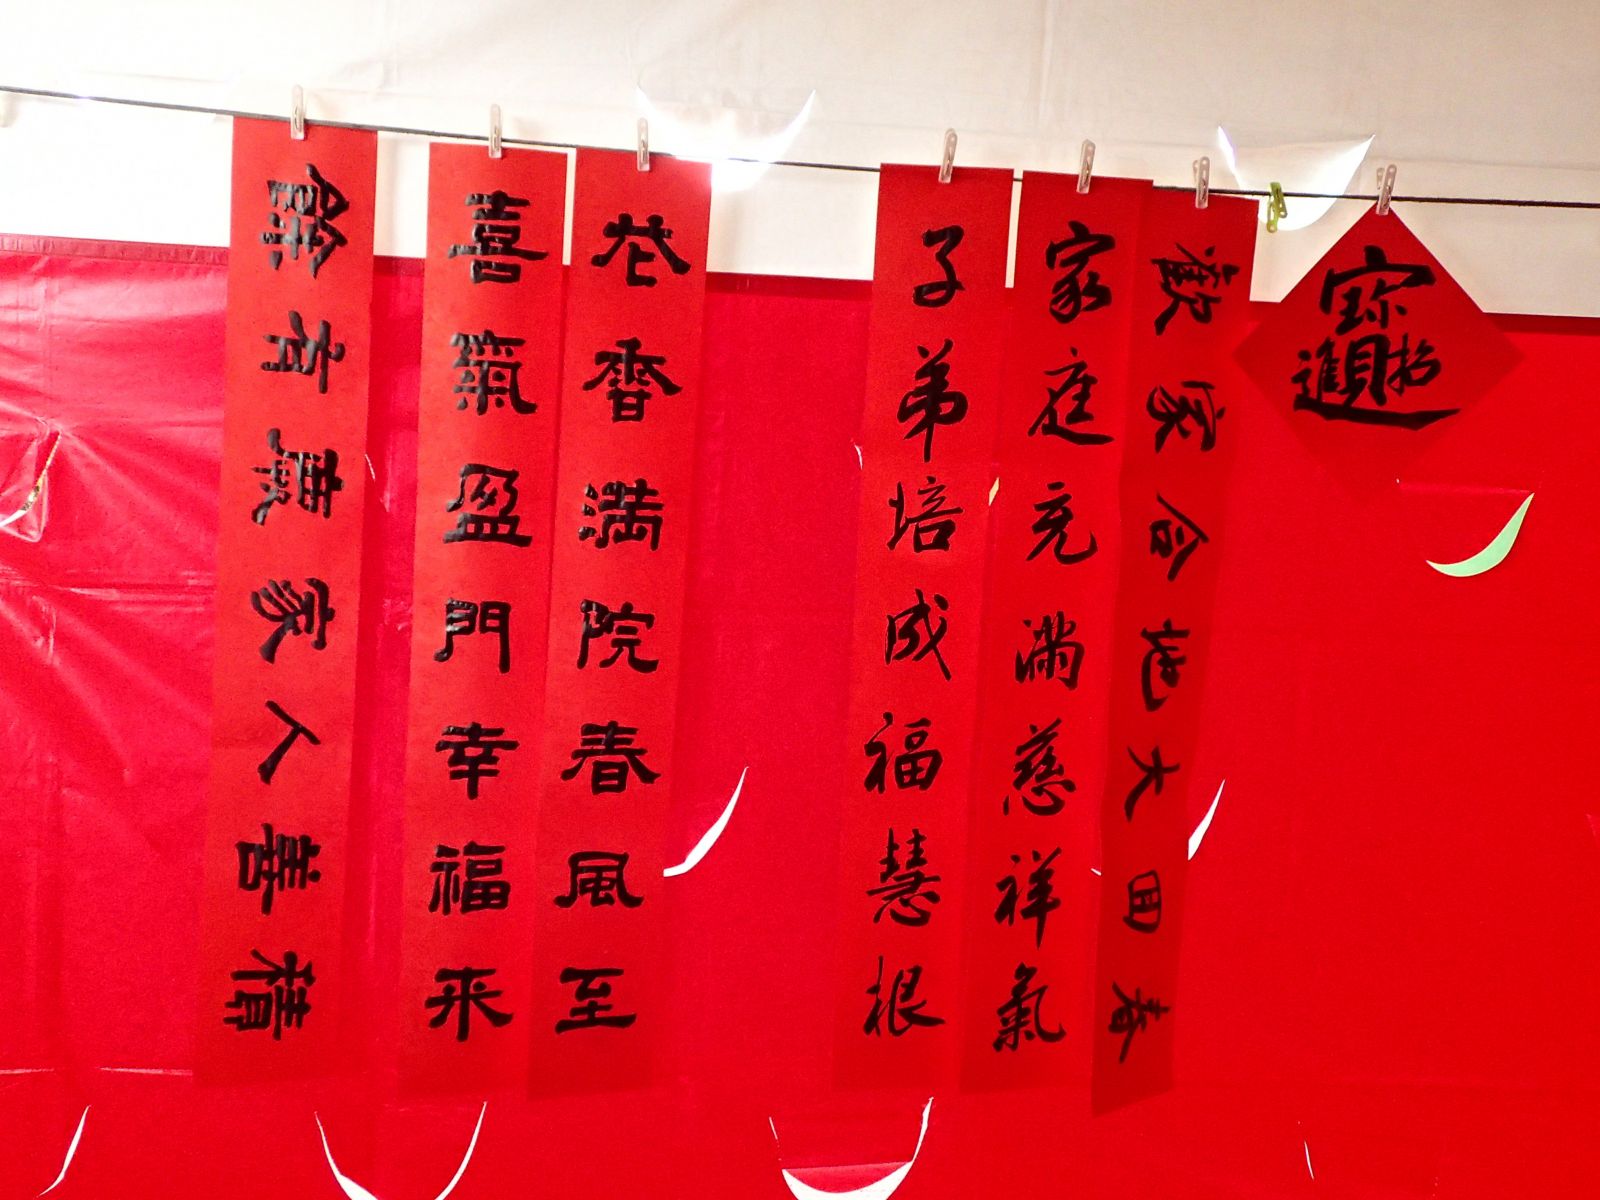 招財進寶
春回大地合家歡
家庭充滿慈祥氣
子弟培成福慧根
花香滿院春風至
喜氣盈門幸福来
積善人家慶有餘